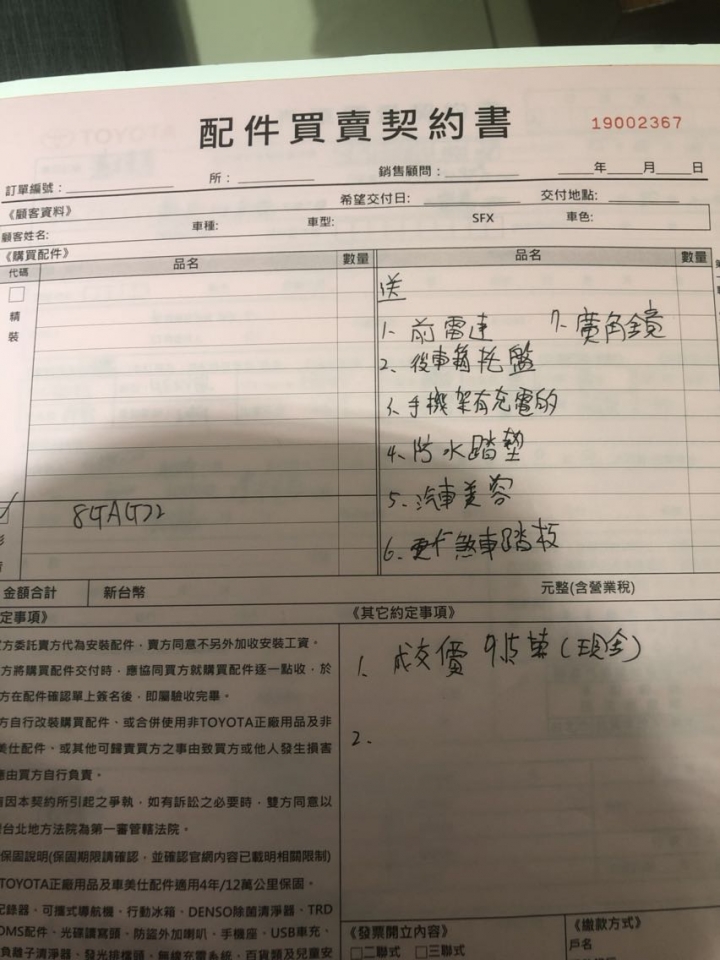 配件買賣契約書
19002367
訂單編號： 所： 銷售顧問： 年 月 日
希望交付日： 交付地點：
《顧客資料》
顧客姓名： 車種： 車型： SFX 車色：
《購買配件》
代碼 品名 數量 品名 數量
精
裝
送
1、前雷達 7、廣角鏡
2、後車箱托盤
3、手機架有充電的
4、防水踏墊
5、汽車美容
6、煞車踏板
金額合計 新台幣 元整(含營業稅)
定事項》 《其它約定事項》
方委託賣方代為安裝配件，賣方同意不另外加收安裝工資。
方將購買配件交付時，應協同買方就購買配件逐一點收，於
方在配件確認單上簽名後，即屬驗收完畢。
方自行改裝購買配件、或合併使用非TOYOTA正廠用品及非
美仕配件、或其他可歸責買方之事由致買方或他人發生損害
應由買方自行負責。
因本契約所引起之爭執，如有訴訟之必要時，雙方同意以
台北地方法院為第一審管轄法院。
保固說明(保固期限請確認，並確認官網內容已載明相關限制)
TOYOTA正廠用品及車美仕配件適用4年/12萬公里保固。
記錄器、可攜式導航機、行動冰箱、DENSO除菌清淨器、TRD
OMS配件、光碟讀寫頭、防盜外加喇叭、手機座、USB車充、
負離子清淨器、發光排檔頭、無線充電系統、百貨類及兒童安
1、成交價 (現金)
2、
《發票開立內容》 《繳款方式》
二聯式 三聯式 戶名